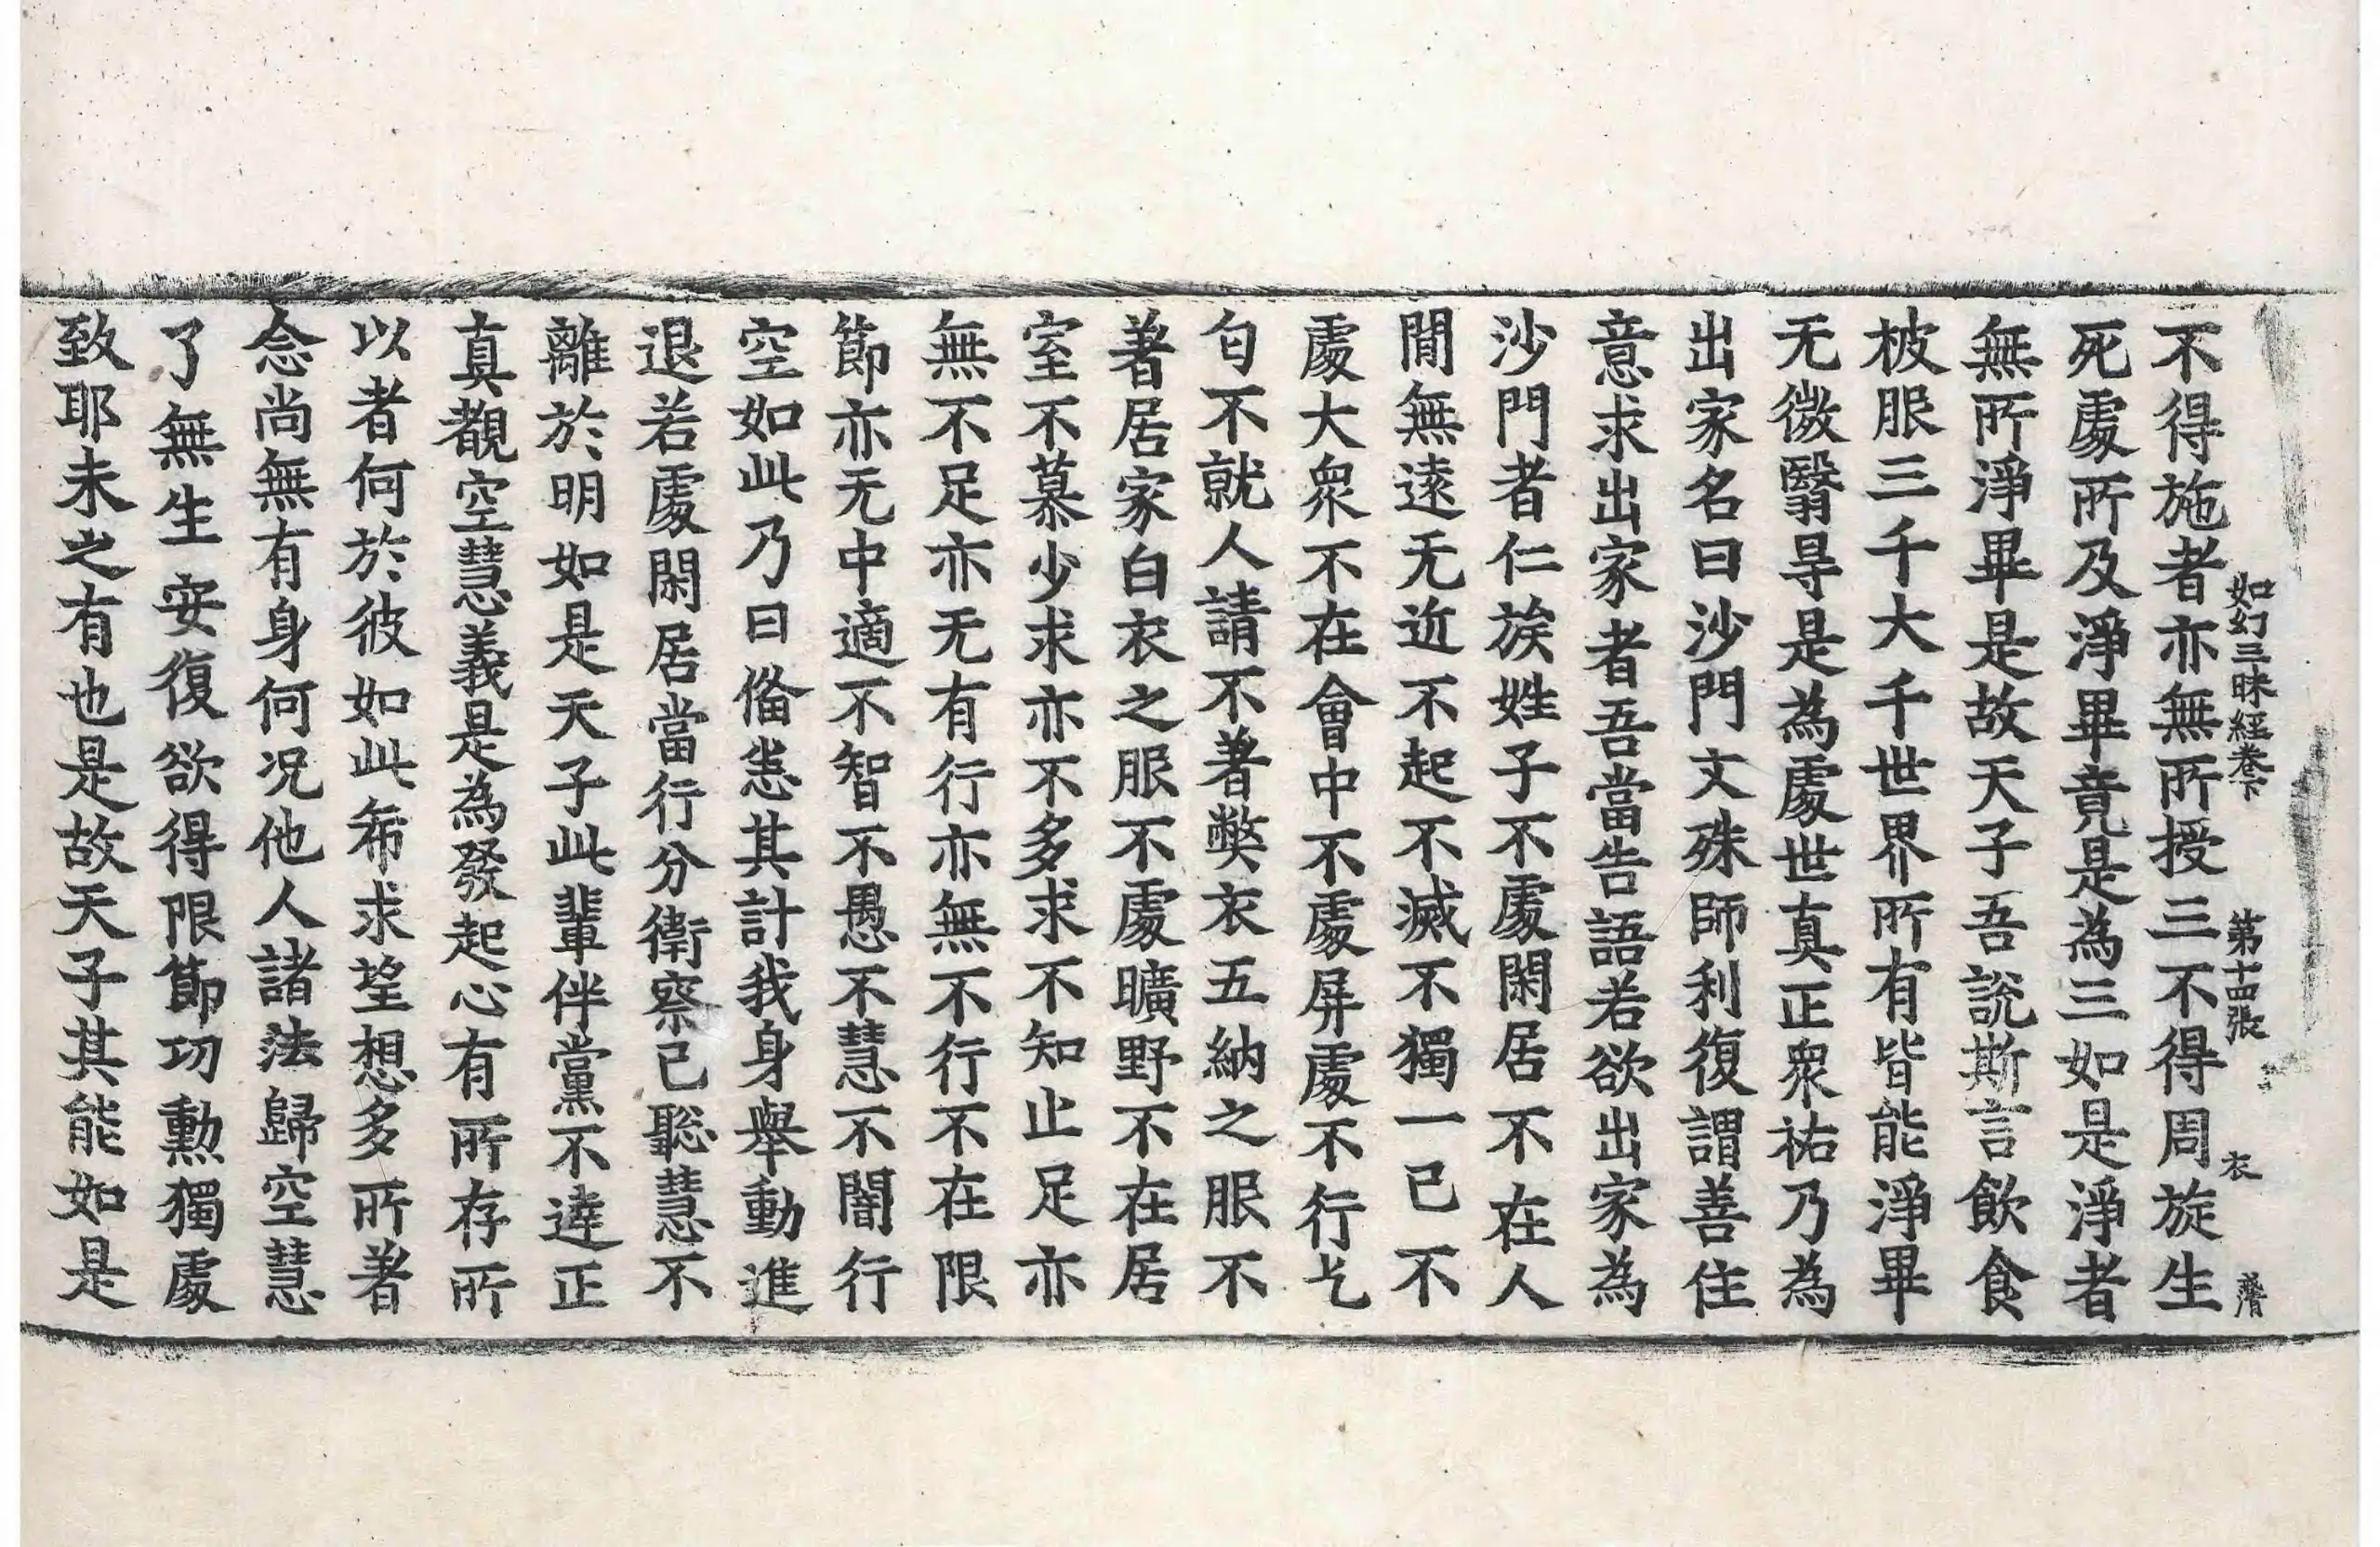 如幻三昧經卷下 第十四張 衣
不得施者亦無所授三不得周旋生
死處所及淨畢竟是為三如是淨者
無所淨畢是故天子吾說斯言飲食
柀服三千大千世界所有皆能淨畢
无微翳㝵是為處世真正衆祐乃為
出家名曰沙門文殊師利復謂善住
意求出家者吾當告語若欲出家為
沙門者仁族姓子不處閑居不在人
閒無遠无近不起不滅不獨一己不
處大衆不在會中不處屏處不行乞
匄不就人請不著弊衣五納之服不
著居家白衣之服不處曠野不在居
室不慕少求亦不多求不知止足亦
無不足亦无有行亦無不行不在限
節亦无中適不智不愚不慧不闇行
空如此乃曰俻恚其計我身舉動進
退若處閑居當行分衛察己聡慧不
離於明如是天子此輩伴黨不達正
真覩空慧義是為發起心有所存所
以者何於彼如此希求望想多所著
念尚無有身何況他人諸法歸空慧
了無生安復欲得限節功勳獨處
致耶未之有也是故天子其能如是